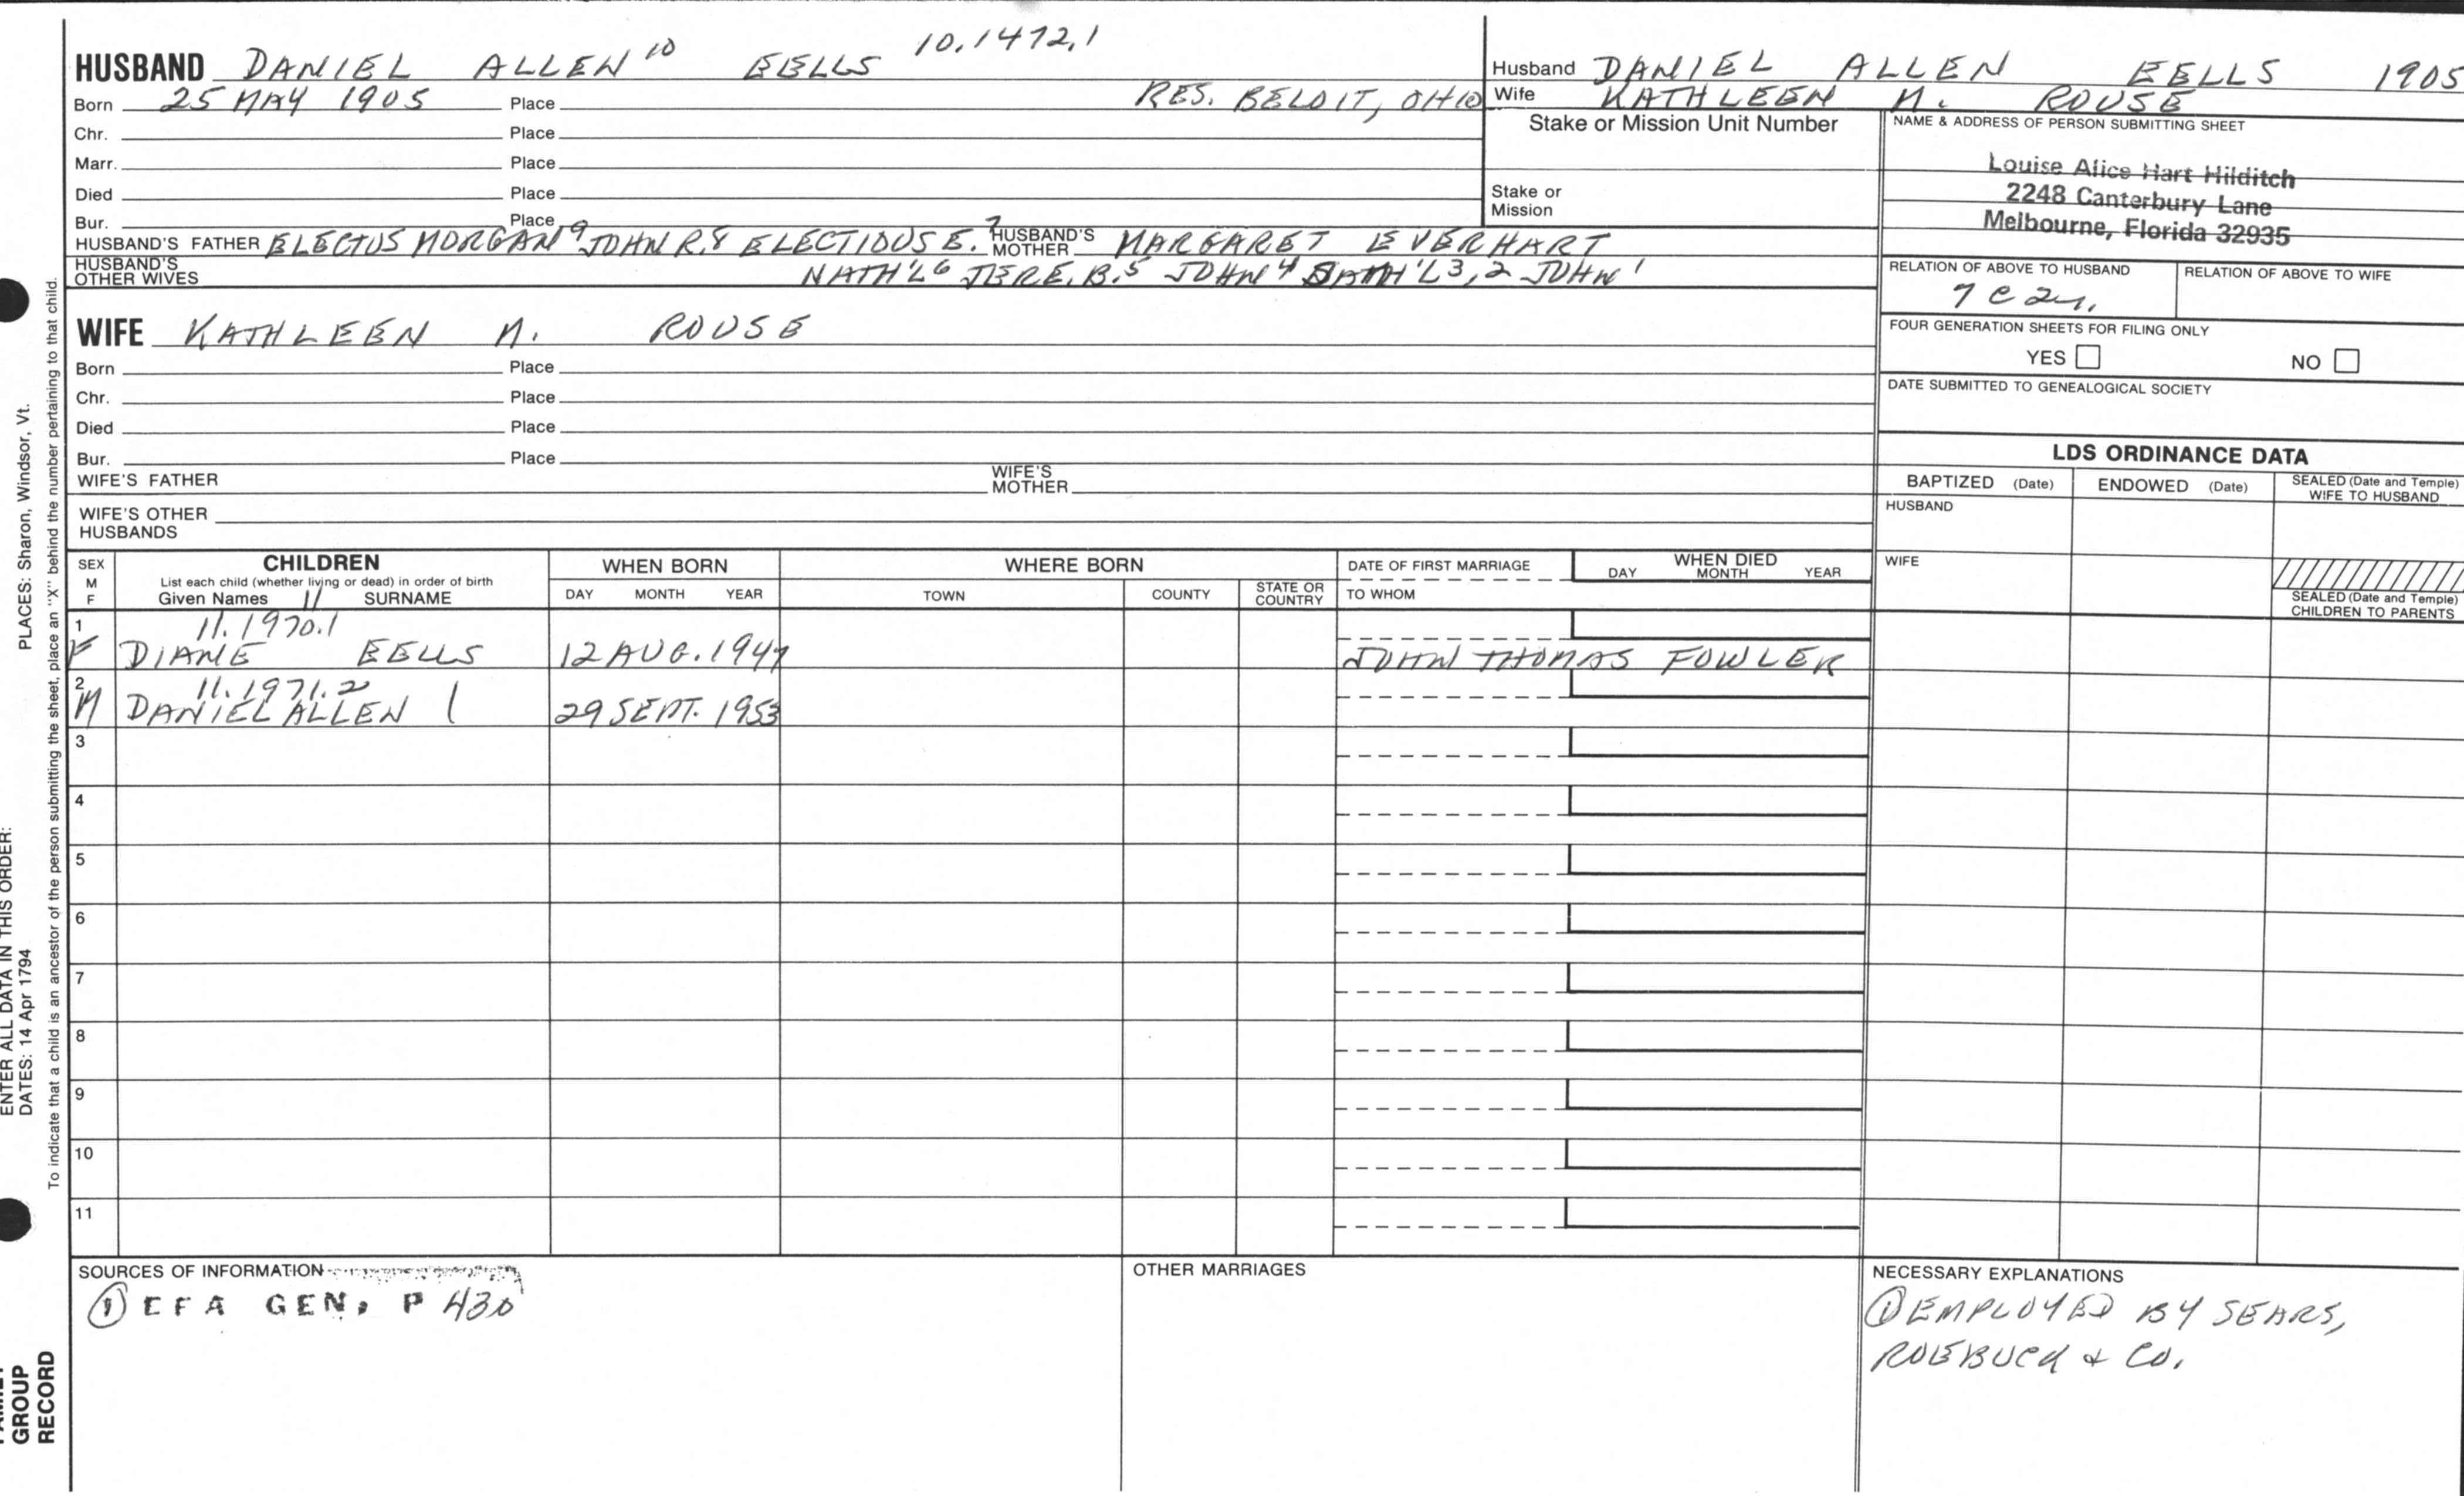 HUSBAND DANIEL ALLEN 10 EELLS 10.1472.1
Born 25 MAY 1905 Place RES. BELOIT, OHIO
Chr. Place
Marr. Place
Died Place
Bur. Place
HUSBAND'S FATHER ELECTUS MORGAN 9 JOHN R. 8 ELECTIOUS E. 7 HUSBAND'S MOTHER MARGARET EVERHART
HUSBAND'S OTHER WIVES NATH'L 6 JERE. B. 5 JOHN 4 NATH'L 3, 2 JOHN 1
WIFE KATHLEEN M. ROUSE
Born Place
Chr. Place
Died Place
Bur. Place
WIFE'S FATHER WIFE'S MOTHER
WIFE'S OTHER HUSBANDS
Husband DANIEL ALLEN EELLS 1905
Wife KATHLEEN M. ROUSE
Stake or Mission Unit Number
Stake or Mission
NAME & ADDRESS OF PERSON SUBMITTING SHEET
Louise Alice Hart Hilditch
2248 Canterbury Lane
Melbourne, Florida 32935
RELATION OF ABOVE TO HUSBAND RELATION OF ABOVE TO WIFE
7 C 2 r.
FOUR GENERATION SHEETS FOR FILING ONLY
YES NO
DATE SUBMITTED TO GENEALOGICAL SOCIETY
LDS ORDINANCE DATA
BAPTIZED (Date) ENDOWED (Date) SEALED (Date and Temple) WIFE TO HUSBAND
HUSBAND
WIFE
SEALED (Date and Temple) CHILDREN TO PARENTS
SEX M F
CHILDREN
List each child (whether living or dead) in order of birth
Given Names 11 SURNAME
WHEN BORN
DAY MONTH YEAR
WHERE BORN
TOWN COUNTY STATE OR COUNTRY
DATE OF FIRST MARRIAGE
TO WHOM
WHEN DIED
DAY MONTH YEAR
1 11.1970.1
F DIANE EELLS 12 AUG. 1947 JOHN THOMAS FOWLER
2 11.1971.2
M DANIEL ALLEN 29 SEPT. 1953
3
4
5
6
7
8
9
10
11
SOURCES OF INFORMATION
① EFA GEN. P 430
OTHER MARRIAGES
NECESSARY EXPLANATIONS
① EMPLOYED BY SEARS,
ROEBUCK & CO.
PLACES: Sharon, Windsor, Vt.
ENTER ALL DATA IN THIS ORDER:
DATES: 14 Apr 1794
To indicate that a child is an ancestor of the person submitting the sheet, place an "X" behind the number pertaining to that child.
GROUP
RECORD